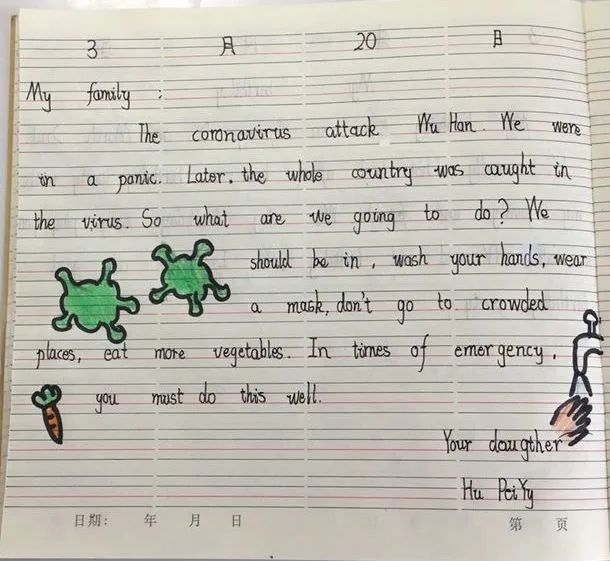 3 月 20 日
My family :
The coronavirus attack Wu Han. We were
in a panic. Later, the whole country was caught in
the virus. So what are we going to do? We
should be in, wash your hands, wear
a mask, don't go to crowded
places, eat more vegetables. In times of emergency,
you must do this well.
Your daugther
Hu PeiYy
日期： 年 月 日 第 页